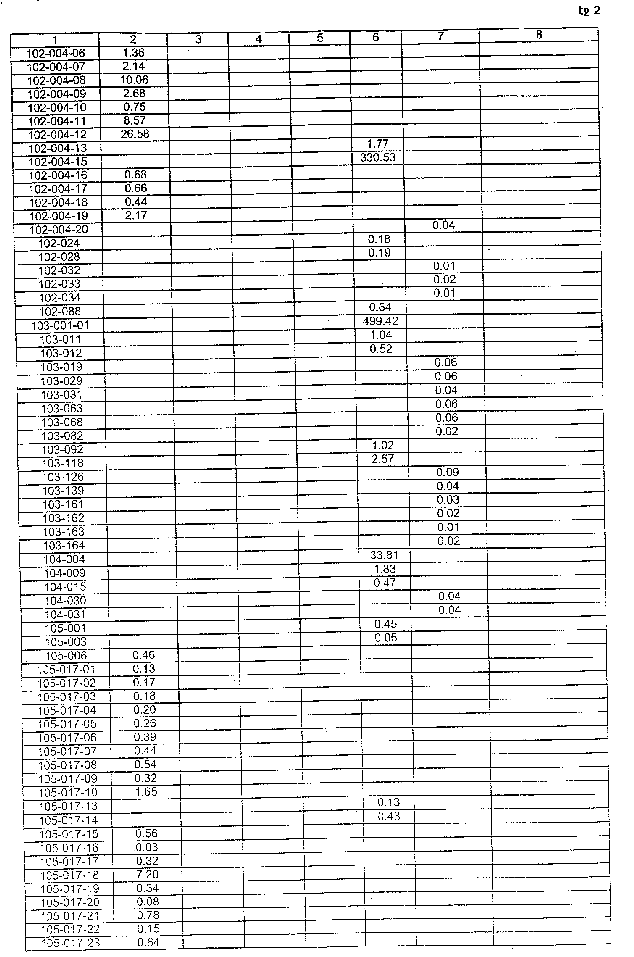 tg 2
1 2 3 4 5 6 7 8
102-004-06 1.36
102-004-07 2.14
102-004-08 10.06
102-004-09 2.68
102-004-10 0.75
102-004-11 8.57
102-004-12 26.58
102-004-13 1.77
102-004-15 330.53
102-004-16 0.68
102-004-17 0.66
102-004-18 0.44
102-004-19 2.17
102-004-20 0.04
102-024 0.18
102-028 0.19
102-032 0.01
102-033 0.02
102-034 0.01
102-088 0.64
103-001-01 499.42
103-011 1.04
103-012 0.52
103-019 0.06
103-029 0.06
103-031 0.04
103-063 0.06
103-068 0.06
103-082 0.02
103-092 1.02
103-118 2.67
103-126 0.09
103-139 0.04
103-161 0.03
103-162 0.02
103-163 0.01
103-164 0.02
104-004 33.81
104-009 1.83
104-015 0.47
104-030 0.04
104-031 0.04
105-001 0.45
105-003 0.05
105-006 0.46
105-017-01 0.13
105-017-02 0.17
105-017-03 0.18
105-017-04 0.20
105-017-05 0.26
105-017-06 0.39
105-017-07 0.44
105-017-08 0.54
105-017-09 0.32
105-017-10 1.65
105-017-13 0.13
105-017-14 0.43
105-017-15 0.56
105-017-16 0.03
105-017-17 0.32
105-017-18 7.20
105-017-19 0.34
105-017-20 0.08
105-017-21 0.78
105-017-22 0.15
105-017-23 0.64